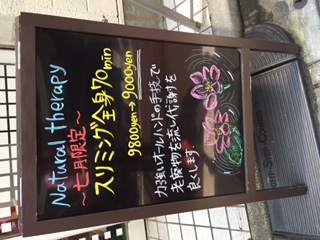 Natural therapy
～七月限定～
スリミング全身70min
9800yen→9000yen
力強いオールハンドの手技で
老廃物を流し代謝を
良くします